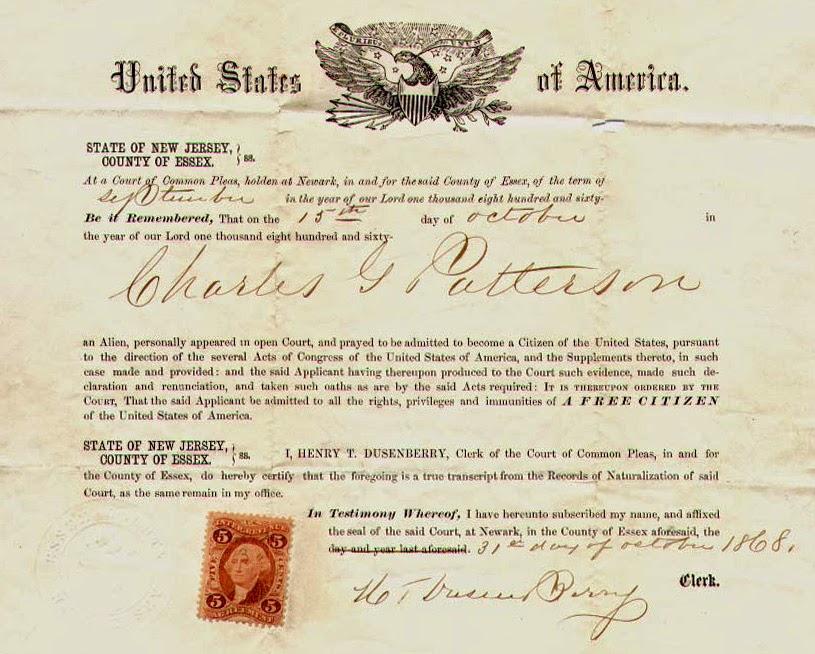 E PLURIBUS UNUM
United States of America.
STATE OF NEW JERSEY,
COUNTY OF ESSEX. } ss.
At a Court of Common Pleas, holden at Newark, in and for the said County of Essex, of the term of
September in the year of our Lord one thousand eight hundred and sixty-
Be it Remembered, That on the 15th day of October in
the year of our Lord one thousand eight hundred and sixty-
Charles G Patterson
an Alien, personally appeared in open Court, and prayed to be admitted to become a Citizen of the United States, pursuant
to the direction of the several Acts of Congress of the United States of America, and the Supplements thereto, in such
case made and provided: and the said Applicant having thereupon produced to the Court such evidence, made such de-
claration and renunciation, and taken such oaths as are by the said Acts required: IT IS THEREUPON ORDERED BY THE
COURT, That the said Applicant be admitted to all the rights, privileges and immunities of A FREE CITIZEN
of the United States of America.
STATE OF NEW JERSEY,
COUNTY OF ESSEX. } ss. I, HENRY T. DUSENBERRY, Clerk of the Court of Common Pleas, in and for
the County of Essex, do hereby certify that the foregoing is a true transcript from the Records of Naturalization of said
Court, as the same remain in my office.
In Testimony Whereof, I have hereunto subscribed my name, and affixed
the seal of the said Court, at Newark, in the County of Essex aforesaid, the
day and year last aforesaid. 31st day of October 1868.
H T Dusenberry Clerk.
INTER. REV.
5 5
FIVE CENTS
5 5
AGREEMENT